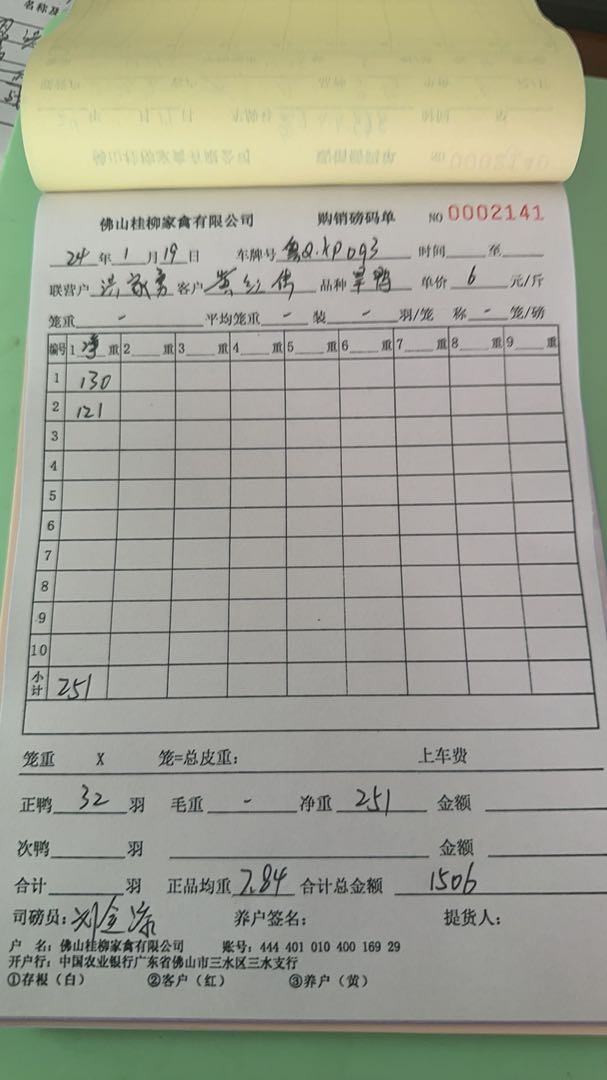 佛山桂柳家禽有限公司 购销磅码单 NO 0002141
24 年 1 月 19 日 车牌号 粤Q·XP093 时间 至
联营户 洪家勇 客户 黄红伟 品种 旱鸭 单价 6 元/斤
笼重 - 平均笼重 - 装 - 羽/笼 称 - 笼/磅
编号 1 净 重 2 重 3 重 4 重 5 重 6 重 7 重 8 重 9 重
1 130
2 121
3
4
5
6
7
8
9
10
小计 251
笼重 X 笼=总皮重: 上车费
正鸭 32 羽 毛重 - 净重 251 金额
次鸭 羽 金额
合计 羽 正品均重 7.84 合计总金额 1506
司磅员: 养户签名: 提货人:
户 名: 佛山桂柳家禽有限公司 账号: 444 401 010 400 169 29
开户行: 中国农业银行广东省佛山市三水区三水支行
①存根（白） ②客户（红） ③养户（黄）